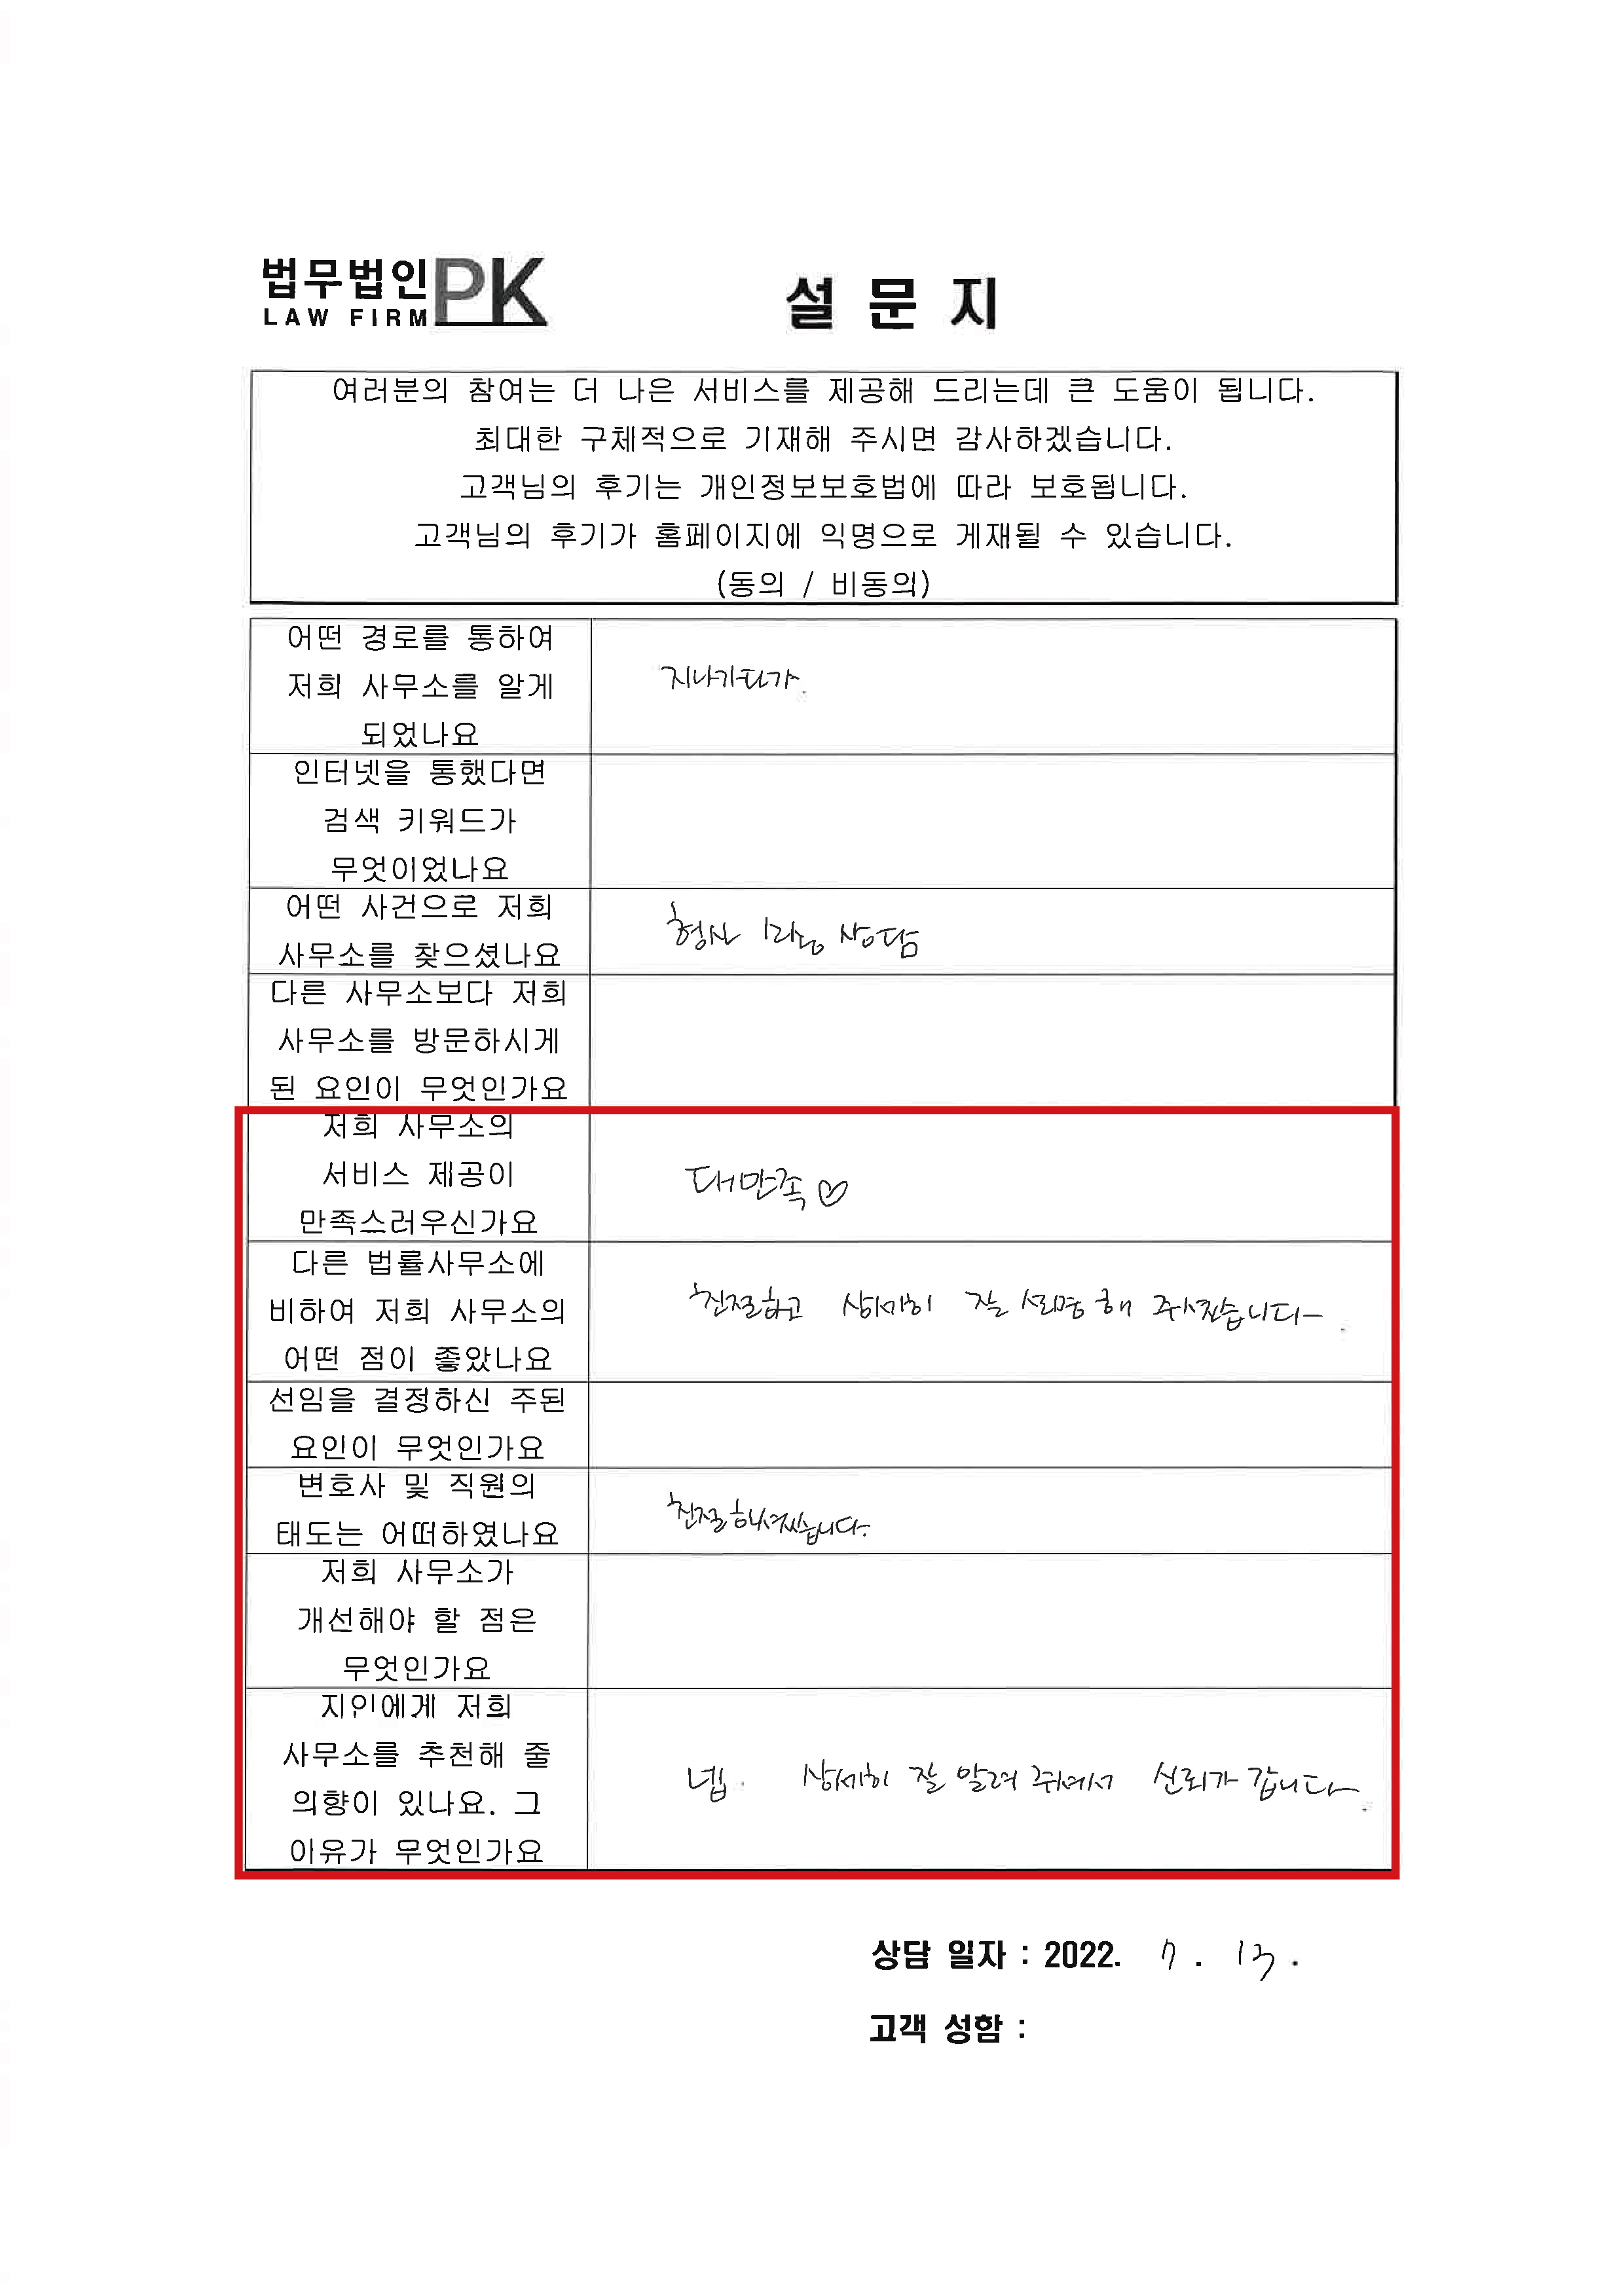 법무법인 PK
LAW FIRM
설 문 지
여러분의 참여는 더 나은 서비스를 제공해 드리는데 큰 도움이 됩니다.
최대한 구체적으로 기재해 주시면 감사하겠습니다.
고객님의 후기는 개인정보보호법에 따라 보호됩니다.
고객님의 후기가 홈페이지에 익명으로 게재될 수 있습니다.
(동의 / 비동의)
어떤 경로를 통하여
저희 사무소를 알게
되었나요
지나가다가.
인터넷을 통했다면
검색 키워드가
무엇이었나요
어떤 사건으로 저희
사무소를 찾으셨나요
형사 상담
다른 사무소보다 저희
사무소를 방문하시게
된 요인이 무엇인가요
저희 사무소의
서비스 제공이
만족스러우신가요
대만족♡
다른 법률사무소에
비하여 저희 사무소의
어떤 점이 좋았나요
친절하고 상세히 잘 설명해 주셨습니다.
선임을 결정하신 주된
요인이 무엇인가요
변호사 및 직원의
태도는 어떠하였나요
친절하셨습니다.
저희 사무소가
개선해야 할 점은
무엇인가요
지인에게 저희
사무소를 추천해 줄
의향이 있나요. 그
이유가 무엇인가요
넵. 상세히 잘 알려 주셔서 신뢰가 갑니다.
상담 일자 : 2022. 7. 13.
고객 성함 :